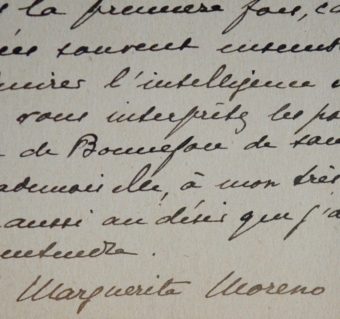 la première fois, ca
souvent insem
mirer l'intelligence
vous interprétez les po
de Bonnefon de son
ademoiselle, à mon très
aussi au désir que j'a
entendre.
Marguerite Moreno